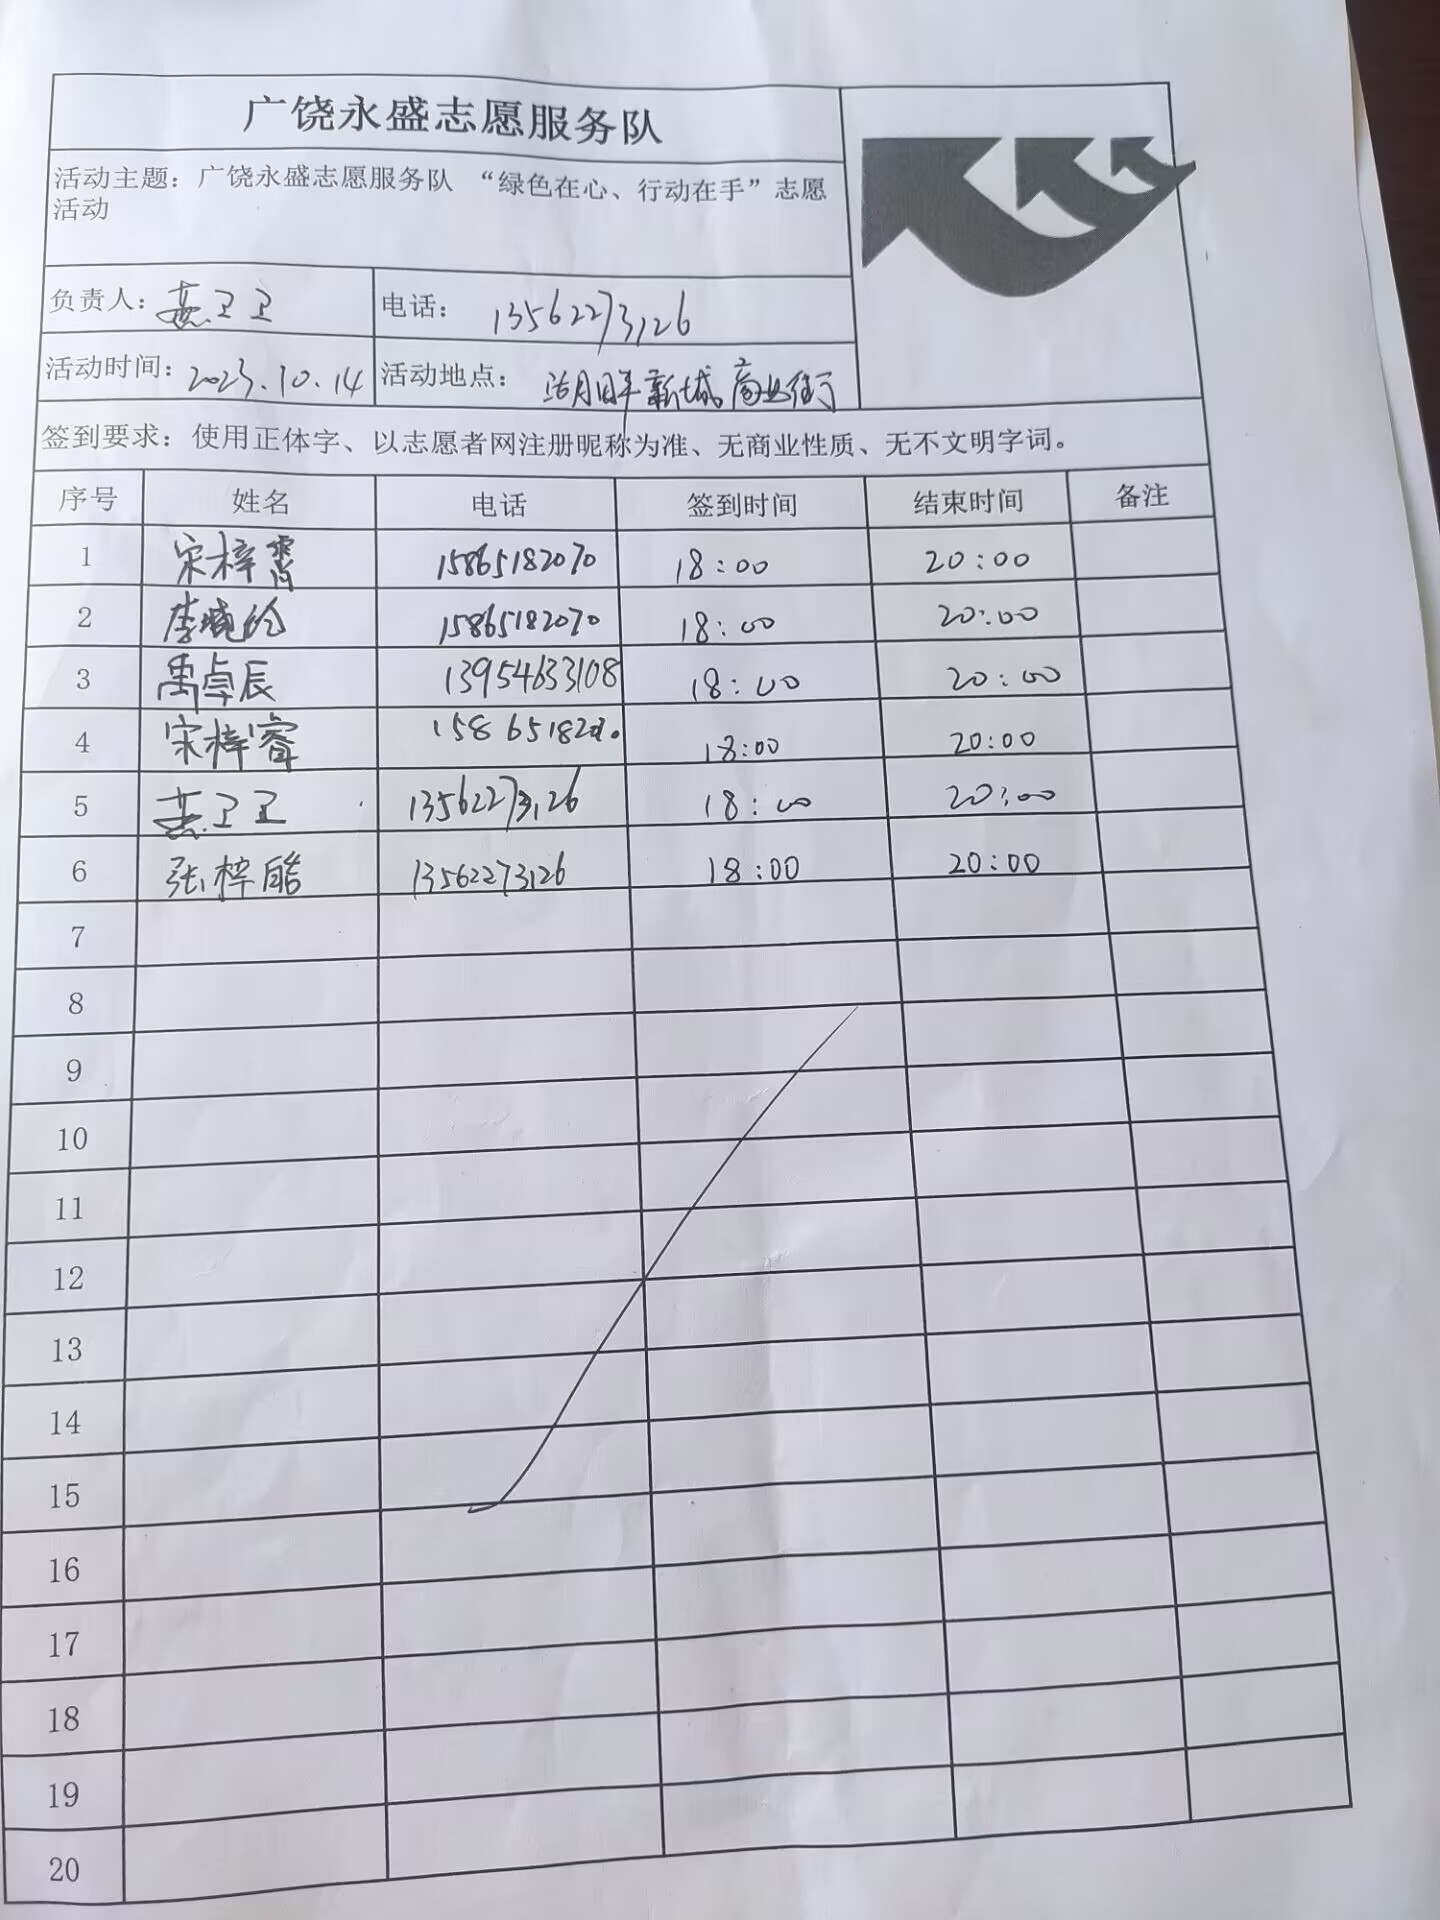 广饶永盛志愿服务队
活动主题：广饶永盛志愿服务队 “绿色在心、行动在手”志愿
活动
负责人：燕卫卫 电话：13562273126
活动时间：2023.10.14 活动地点：新城商业街
签到要求：使用正体字、以志愿者网注册昵称为准、无商业性质、无不文明字词。
序号 姓名 电话 签到时间 结束时间 备注
1 宋梓霄 15865182070 18:00 20:00
2 李晓纶 15865182070 18:00 20:00
3 禹卓辰 13954633108 18:00 20:00
4 宋梓睿 18:00 20:00
5 燕卫卫 13562273126 18:00 20:00
6 张梓皓 13562273126 18:00 20:00
7
8
9
10
11
12
13
14
15
16
17
18
19
20